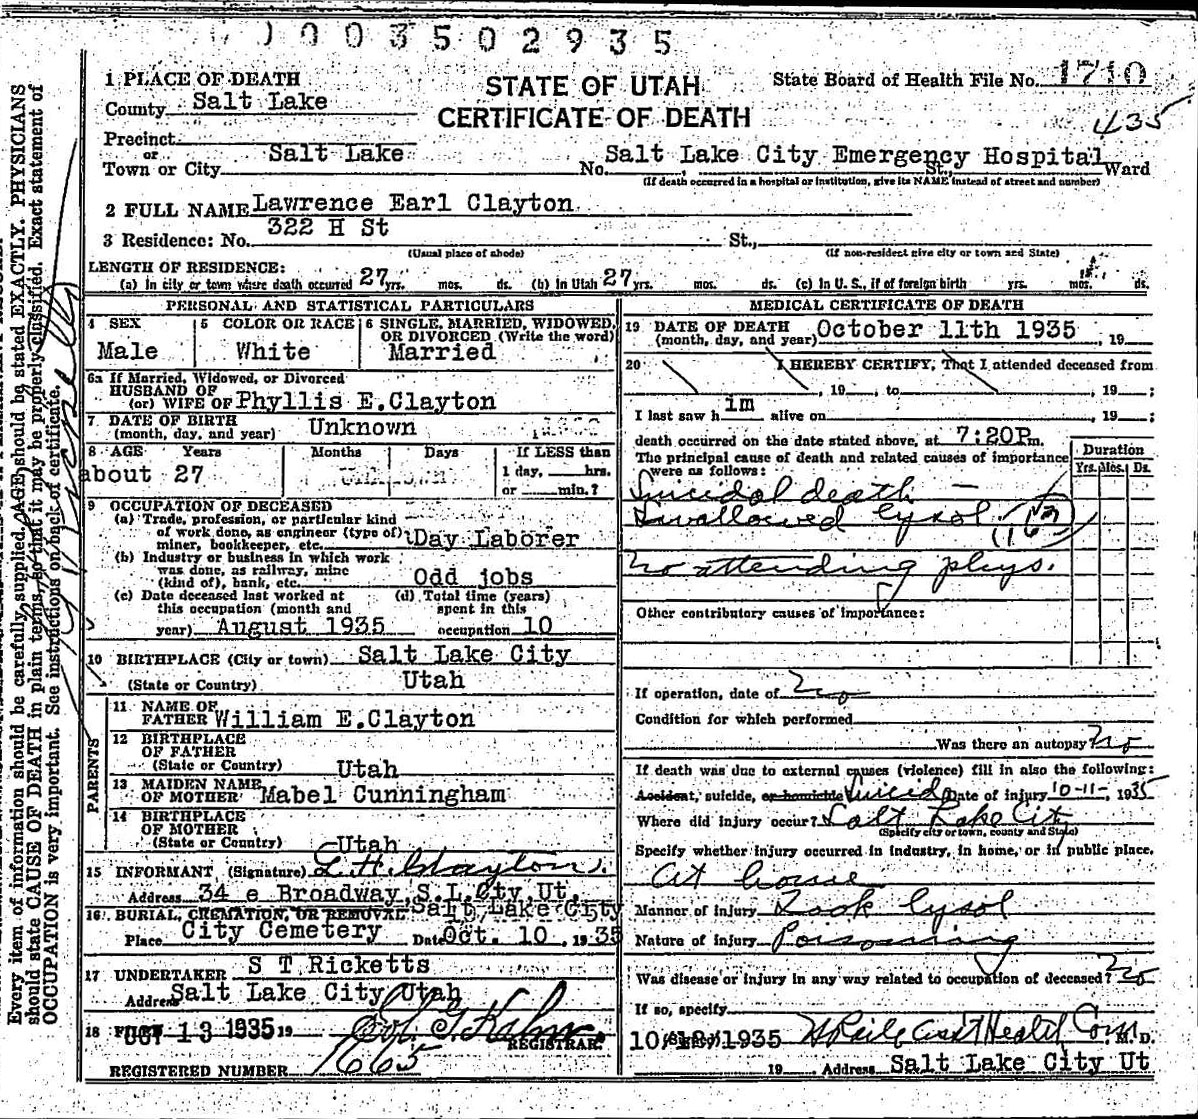 003502935
1 PLACE OF DEATH
STATE OF UTAH
CERTIFICATE OF DEATH
State Board of Health File No. 1710
435
County Salt Lake
Precinct
or
Town or City Salt Lake No. Salt Lake City Emergency Hospital St., Ward
(If death occurred in a hospital or institution, give its NAME instead of street and number)
2 FULL NAME Lawrence Earl Clayton
3 Residence: No. 322 H St St.,
(Usual place of abode) (If non-resident give city or town and State)
LENGTH OF RESIDENCE:
(a) In city or town where death occurred 27 yrs. mos. ds. (b) In Utah 27 yrs. mos. ds. (c) In U. S., if of foreign birth yrs. mos. ds.
PERSONAL AND STATISTICAL PARTICULARS
4 SEX
Male
5 COLOR OR RACE
White
6 SINGLE, MARRIED, WIDOWED,
OR DIVORCED (Write the word)
Married
6a If Married, Widowed, or Divorced
HUSBAND OF
(or) WIFE OF Phyllis E.Clayton
7 DATE OF BIRTH
(month, day, and year) Unknown
8 AGE Years Months Days If LESS than
about 27
1 day, hrs.
or min.?
9 OCCUPATION OF DECEASED
(a) Trade, profession, or particular kind
of work done, as engineer (type of)
miner, bookkeeper, etc. Day Laborer
(b) Industry or business in which work
was done, as railway, mine
(kind of), bank, etc. Odd jobs
(c) Date deceased last worked at
this occupation (month and
year) August 1935
(d) Total time (years)
spent in this
occupation 10
10 BIRTHPLACE (City or town) Salt Lake City
(State or Country) Utah
PARENTS
11 NAME OF
FATHER William E.Clayton
12 BIRTHPLACE
OF FATHER
(State or Country) Utah
13 MAIDEN NAME
OF MOTHER Mabel Cunningham
14 BIRTHPLACE
OF MOTHER
(State or Country) Utah
15 INFORMANT (Signature) L.H. Clayton.
Address 34 e Broadway, S.L.Cty Ut.
16 BURIAL, CREMATION, OR REMOVAL Salt Lake City
Place City Cemetery Date Oct. 10, 1935
17 UNDERTAKER S T Ricketts
Address Salt Lake City Utah
18 OCT 13 1935 19
REGISTRAR.
REGISTERED NUMBER 1665
MEDICAL CERTIFICATE OF DEATH
19 DATE OF DEATH
(month, day, and year) October 11th 1935, 19
20 I HEREBY CERTIFY, That I attended deceased from
, 19 , to , 19 ;
I last saw h im alive on , 19 ;
death occurred on the date stated above, at 7:20P m.
The principal cause of death and related causes of importance
were as follows:
Duration
Yrs. Mos. Ds.
Suicidal death -
Swallowed lysol 163
No attending phys.
Other contributory causes of importance:
If operation, date of No
Condition for which performed
Was there an autopsy? No
If death was due to external causes (violence) fill in also the following:
Accident, suicide, or homicide Suicide Date of injury 10-11-, 1935
Where did injury occur? Salt Lake City
(Specify city or town, county and State)
Specify whether injury occurred in industry, in home, or in public place.
At house
Manner of injury Took lysol
Nature of injury Poisoning
Was disease or injury in any way related to occupation of deceased? No
If so, specify
10/13/1935 Asst Health Com M. D.
19 Address Salt Lake City Ut
Every item of information should be carefully supplied. AGE should be stated EXACTLY. PHYSICIANS
should state CAUSE OF DEATH in plain terms, so that it may be properly classified. Exact statement of
OCCUPATION is very important. See instructions on back of certificate.